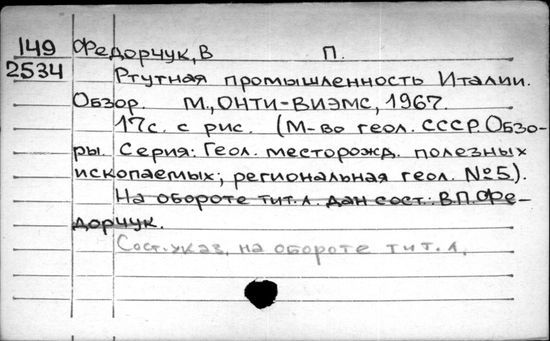 149 Федорчук, В П.
2534 Ртутная промышленность Италии.
Обзор. М., ОНТИ-ВИЭМС, 1967.
17с. с рис. (М-во геол. СССР. Обзо-
ры. Серия: Геол. месторожд. полезных
ископаемых; региональная геол. №5).
На обороте тит. л. дан сост.: В.П. Фе-
дорчук.
Сост. указ. на обороте тит. л.